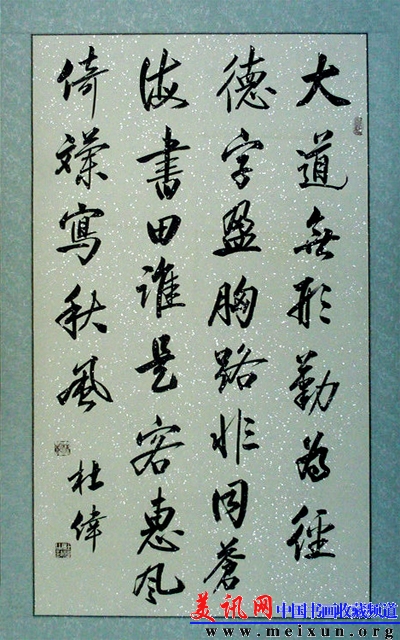 大道無形勤為徑
德字盈胸路非同蒼
海書田誰是客惠風
倚寫秋風
杜偉
美讯网 中国书画收藏频道
www.meixun.org